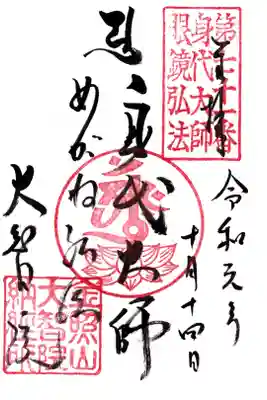 奉拝
第七十一番
身代大師
眼鏡弘法
令和元年
十月十四日
身代大師
めがね弘法
大智院
金照山
大智院